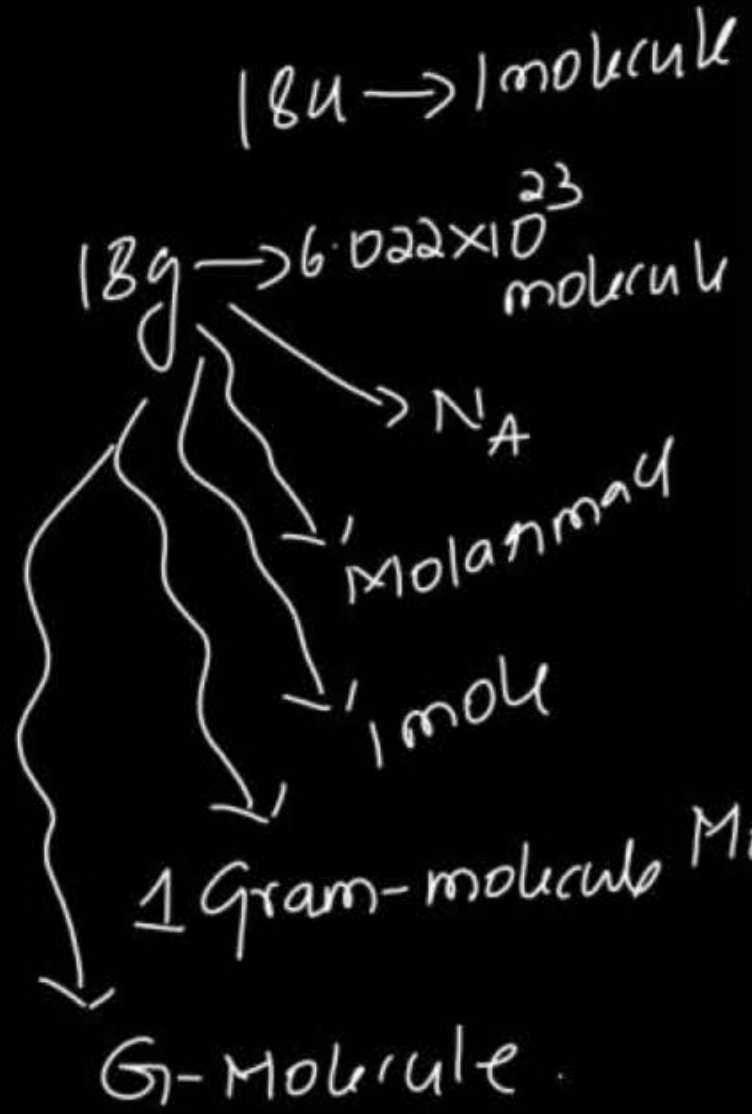 18u → 1 molecule
18g → 6.022×10²³
molecule
→ N_A
Molar mass
1 mole
1 Gram-molecule M
G-Molecule.